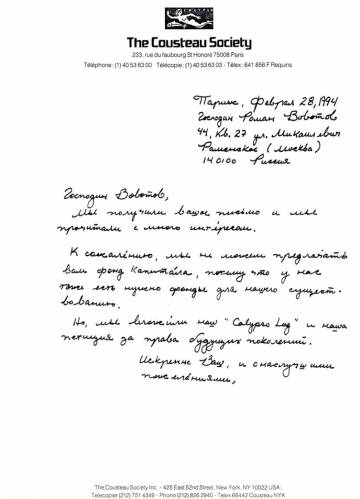 The Cousteau Society
233, rue du faubourg St Honoré 75008 Paris
Téléphone: (1) 40 53 63 00 Télécopie: (1) 40 53 63 03 - Télex: 641 856 F Requins
Париж, Феврал 28, 1994
Господин Роман Вовотов
44, Кв. 27 ул. Михалевич
Раменское (Москва)
140100 Россия
Господин Вовотов,
Мы получили вашое письмо и мы
прочитали с много интересом.
К сожалению, мы не можем предлачать
вам фонд Капитала, потому что у нас
тоже есть нужно фонды для нашего сущест-
вованию.
Но, мы вложили наш "Calypso Log" и наша
петиция за права будущих поколений.
Искренне Ваш, и с наслучшими
пожеланиями,
The Cousteau Society Inc. - 425 East 52nd Street, New York, NY 10022 USA ;
Telecopier (212) 751 4349 - Phone (212) 826 2940 - Telex 66442 Cousteau NYK